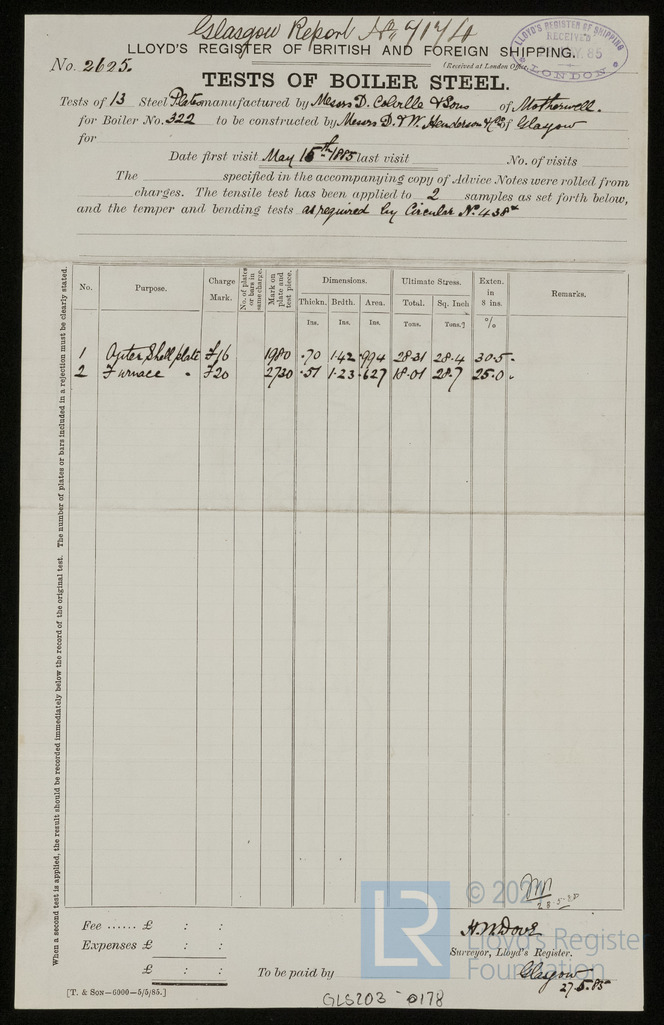 Glasgow Report No.
LLOYD'S REGISTER OF BRITISH AND FOREIGN SHIPPING.
LLOYD'S REGISTER OF SHIPPING
RECEIVED
85
LONDON
No. 2625.
(Received at London Office
TESTS OF BOILER STEEL.
Tests of 13 Steel Plates manufactured by Messrs D. Colville & Sons of Motherwell.
for Boiler No. 322 to be constructed by Messrs D. & W. Henderson & Co of Glasgow
for
Date first visit May 15th 1885 last visit No. of visits
The specified in the accompanying copy of Advice Notes were rolled from
charges. The tensile test has been applied to 2 samples as set forth below,
and the temper and bending tests as required by Circular No. 438
When a second test is applied, the result should be recorded immediately below the record of the original test. The number of plates or bars included in a rejection must be clearly stated.
No. Purpose. Charge Mark. No. of plates or bars in same charge. Mark on plate and test piece. Dimensions. Ultimate Stress. Exten. in 8 ins. Remarks.
Thickn. Brdth. Area. Total. Sq. Inch
Ins. Ins. Ins. Tons. Tons. %
1 Outer Shell plate F16 1980 .70 1.42 .994 28.31 28.4 30.5.
2 Furnace " F20 2730 .51 1.23 .627 18.01 28.7 25.0.
LR
© 202
Lloyd's Register
Foundation
28.5.85
Fee ...... £ : :
Expenses £ : :
£ : :
To be paid by
H.W. Dove
Surveyor, Lloyd's Register.
Glasgow
27.5.85
[T. & Son—6000—5/5/85.]
GLS203-0178